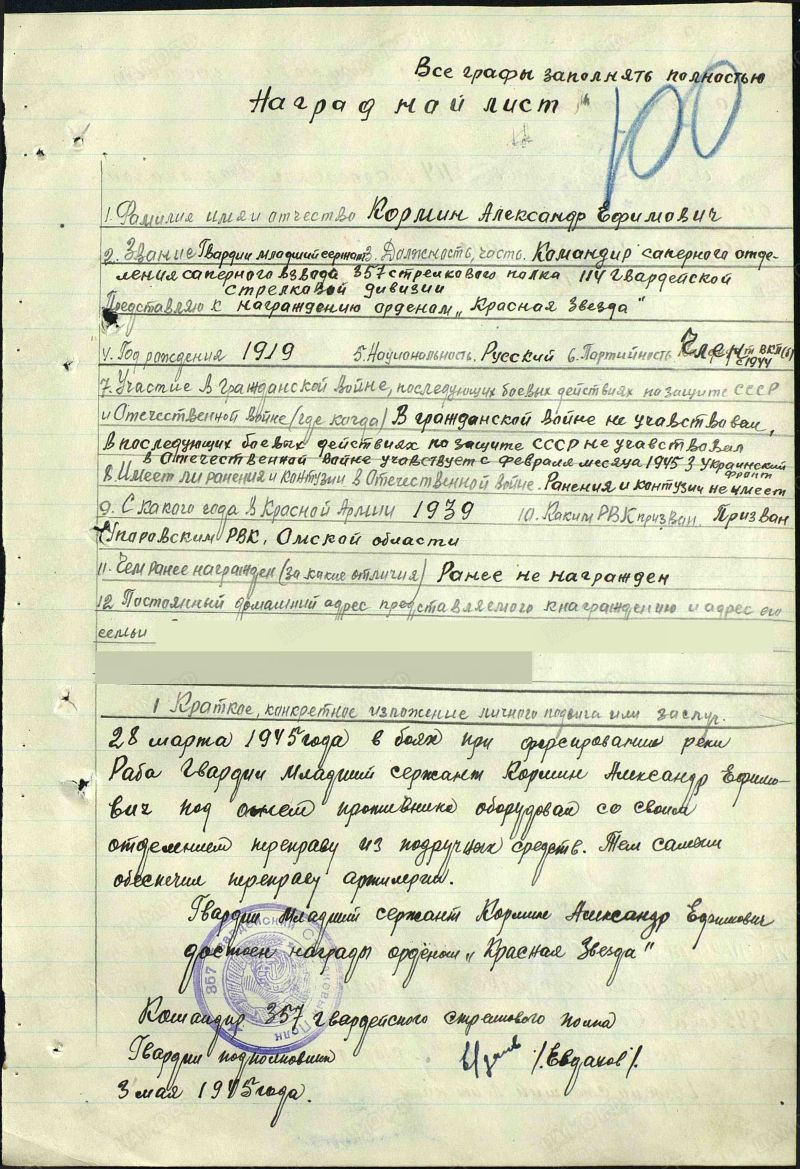 Все графы заполнять полностью
Наградной лист
100
1. Фамилия имя и отчество Кормин Александр Ефимович
2. Звание Гвардии младший сержант 3. Должность, часть. Командир саперного отде-
ления саперного взвода 357 стрелкового полка 114 гвардейской
стрелковой дивизии
Представляю к награждению орденом „Красная Звезда"
4. Год рождения 1919 5. Национальность. Русский 6. Партийность Член ВКП(б)
с 1944
7. Участие в гражданской войне, последующих боевых действиях по защите СССР
и Отечественной войне (где когда) В гражданской войне не учавствовал,
в последующих боевых действиях по защите СССР не учавствовал
в Отечественной войне учавствует с февраля месяца 1945 3 Украинский
фронт
8. Имеет ли ранения и контузии в Отечественной войне. Ранения и контузии не имеет
9. С какого года в Красной Армии 1939 10. Каким РВК призван. Призван
Упоровским РВК, Омской области
11. Чем ранее награжден (за какие отличия) Ранее не награжден
12 Постоянный домашний адрес представляемого к награждению и адрес его
семьи
1 Краткое, конкретное изложение личного подвига или заслуг.
28 марта 1945 года в боях при форсировании реки
Раба Гвардии Младший сержант Кормин Александр Ефимо-
вич под огнем противника оборудовал со своим
отделением переправу из подручных средств. Тем самым
обеспечил переправу артилерии.
Гвардии Младший сержант Кормин Александр Ефимович
достоен награды орденом „Красная Звезда"
357 Гвардейский Стрелковый Полк
Командир 357 гвардейского стрелкового полка
Гвардии подполковник /Евдаков/.
3 мая 1945 года.